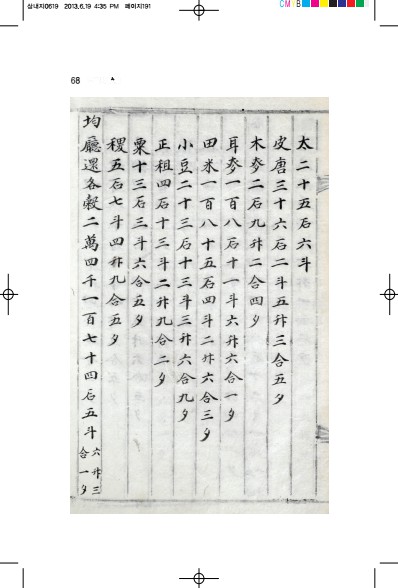 심내지0619 2013.6.19 4:35 PM 페이지191
CMYB
68
太二十五石六斗
皮唐三十六石二斗五升三合五夕
木麥二石九升二合四夕
耳麥一百八石十一斗六升六合一夕
田米一百八十五石四斗二升六合三夕
小豆二十三石十三斗三升六合九夕
正租四石十三斗二升九合二夕
粟十三石三斗六合五夕
稷五石七斗四升九合五夕
均廳還各穀二萬四千一百七十四石五斗六升三合一夕